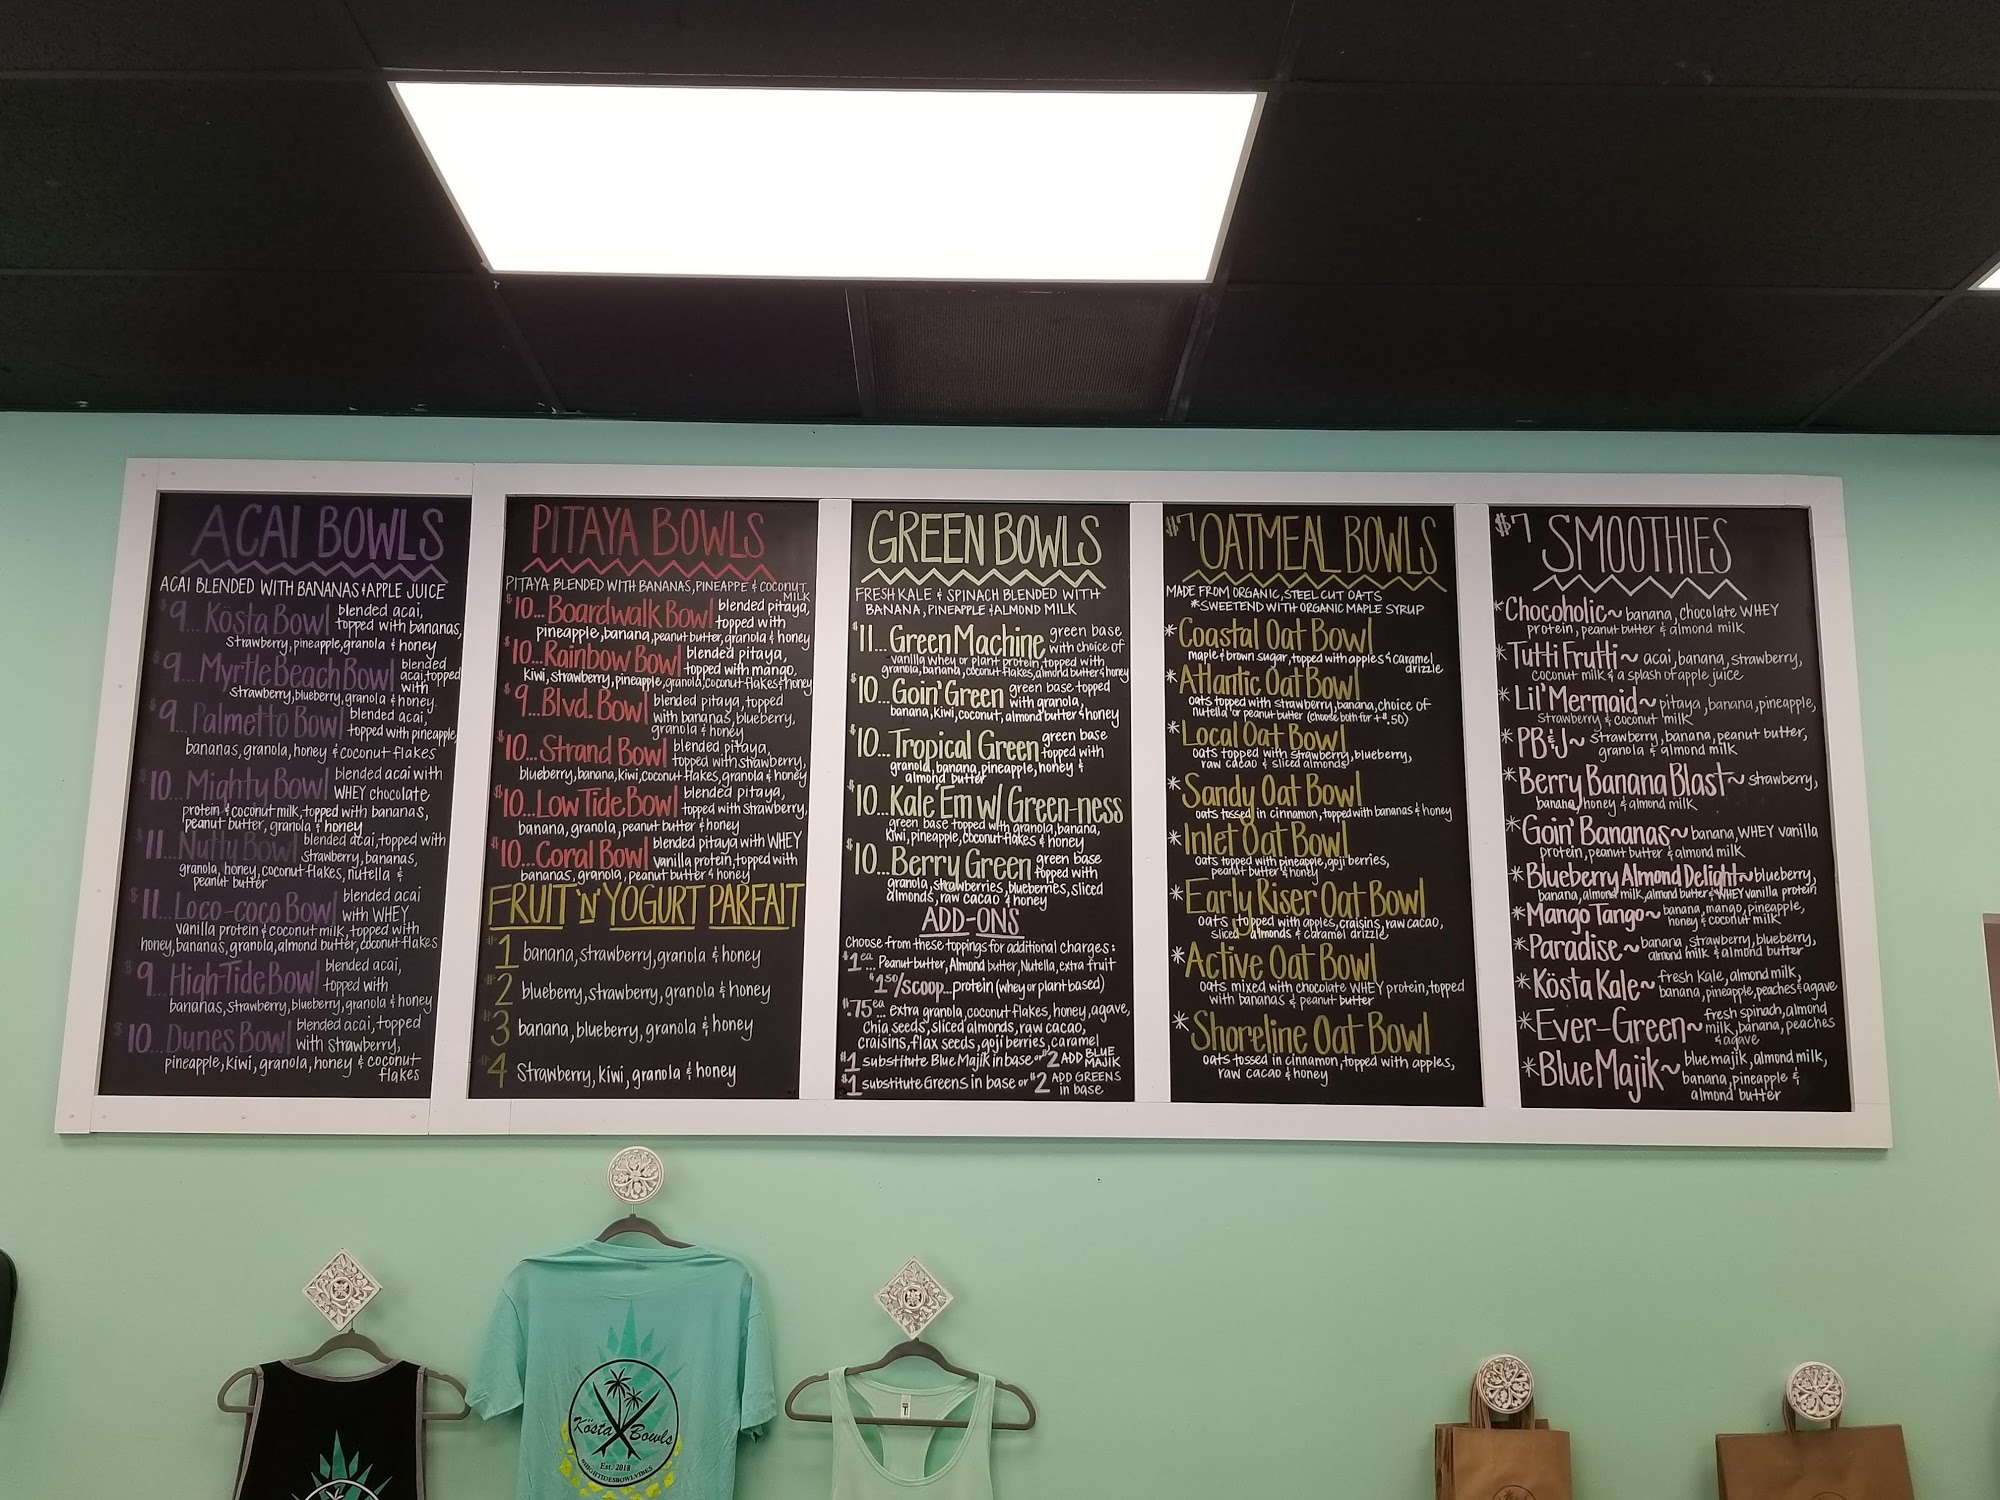 ACAI BOWLS
ACAI BLENDED WITH BANANAS & APPLE JUICE
$9...Kösta Bowl blended acai,
topped with bananas,
strawberry, pineapple, granola & honey
$9...Myrtle Beach Bowl blended
acai, topped
with
strawberry, blueberry, granola & honey.
$9...Palmetto Bowl blended acai,
topped with pineapple,
bananas, granola, honey & coconut flakes
$10...Mighty Bowl blended acai with
WHEY chocolate
protein & coconut milk, topped with bananas,
peanut butter, granola & honey
$11...Nutty Bowl blended acai, topped with
strawberry, bananas,
granola, honey, coconut flakes, nutella &
peanut butter
$11...Loco-coco Bowl blended acai
with WHEY
vanilla protein & coconut milk, topped with
honey, bananas, granola, almond butter, coconut flakes
$9...High Tide Bowl blended acai,
topped with
bananas, strawberry, blueberry, granola & honey
$10...Dunes Bowl blended acai, topped
with strawberry,
pineapple, kiwi, granola, honey & coconut
flakes
PITAYA BOWLS
PITAYA BLENDED WITH BANANAS, PINEAPPE & COCONUT
MILK
$10...Boardwalk Bowl blended pitaya,
topped with
pineapple, banana, peanut butter, granola & honey
$10...Rainbow Bowl blended pitaya,
topped with mango,
kiwi, strawberry, pineapple, granola, coconut flakes & honey
$9...Blvd. Bowl blended pitaya, topped
with bananas, blueberry,
granola & honey
$10...Strand Bowl blended pitaya,
topped with strawberry,
blueberry, banana, kiwi, coconut flakes, granola & honey
$10...Low Tide Bowl blended pitaya,
topped with strawberry,
banana, granola, peanut butter & honey
$10...Coral Bowl blended pitaya with WHEY
vanilla protein, topped with
bananas, granola, peanut butter & honey
FRUIT 'N' YOGURT PARFAIT
#1 banana, strawberry, granola & honey
#2 blueberry, strawberry, granola & honey
#3 banana, blueberry, granola & honey
#4 Strawberry, kiwi, granola & honey
GREEN BOWLS
FRESH KALE & SPINACH BLENDED WITH
BANANA, PINEAPPLE & ALMOND MILK
$11...Green Machine green base
with choice of
vanilla whey or plant protein, topped with
granola, banana, coconut flakes, almond butter & honey
$10...Goin' Green green base topped
with granola,
banana, kiwi, coconut, almond butter & honey
$10...Tropical Green green base
topped with
granola, banana, pineapple, honey &
almond butter
$10...Kale Em w/ Green-ness
green base topped with granola, banana,
kiwi, pineapple, coconut flakes & honey
$10...Berry Green green base
topped with
granola, strawberries, blueberries, sliced
almonds, raw cacao & honey
ADD-ONS
Choose from these toppings for additional charges:
$1 ea... Peanut butter, Almond butter, Nutella, extra fruit
$1 50/scoop...protein (whey or plant based)
$.75 ea... extra granola, coconut flakes, honey, agave,
Chia seeds, sliced almonds, raw cacao,
craisins, flax seeds, goji berries, caramel
$1 substitute Blue Majik in base or $2 ADD BLUE
MAJIK
$1 substitute Greens in base or $2 ADD GREENS
in base
$7 OATMEAL BOWLS
MADE FROM ORGANIC, STEEL CUT OATS
*SWEETEND WITH ORGANIC MAPLE SYRUP
*Coastal Oat Bowl
maple & brown sugar, topped with apples & caramel
drizzle
*Atlantic Oat Bowl
oats topped with strawberry, banana, choice of
nutella or peanut butter (choose both for +$.50)
*Local Oat Bowl
oats topped with strawberry, blueberry,
raw cacao & sliced almonds
*Sandy Oat Bowl
oats tossed in cinnamon, topped with bananas & honey
*Inlet Oat Bowl
oats topped with pineapple, goji berries,
peanut butter & honey
*Early Riser Oat Bowl
oats topped with apples, craisins, raw cacao,
sliced almonds & caramel drizzle
*Active Oat Bowl
oats mixed with chocolate WHEY protein, topped
with bananas & peanut butter
*Shoreline Oat Bowl
oats tossed in cinnamon, topped with apples,
raw cacao & honey
$7 SMOOTHIES
*Chocoholic~ banana, chocolate WHEY
protein, peanut butter & almond milk
*Tutti Frutti~ acai, banana, strawberry,
coconut milk & a splash of apple juice
*Lil' Mermaid~ pitaya, banana, pineapple,
strawberry & coconut milk
*PB&J~ strawberry, banana, peanut butter,
granola & almond milk
*Berry Banana Blast~ strawberry,
banana, honey & almond milk
*Goin' Bananas~ banana, WHEY vanilla
protein, peanut butter & almond milk
*Blueberry Almond Delight~ blueberry,
banana, almond milk, almond butter & WHEY vanilla protein
*Mango Tango~ banana, mango, pineapple,
honey & coconut milk
*Paradise~ banana, strawberry, blueberry,
almond milk & almond butter
*Kösta Kale~ fresh Kale, almond milk,
banana, pineapple, peaches & agave
*Ever-Green~ fresh spinach, almond
milk, banana, peaches
& agave
*Blue Majik~ blue majik, almond milk,
banana, pineapple &
almond butter
Kösta Bowls
Est. 2018
#HIGHTIDESBOWLVIBES